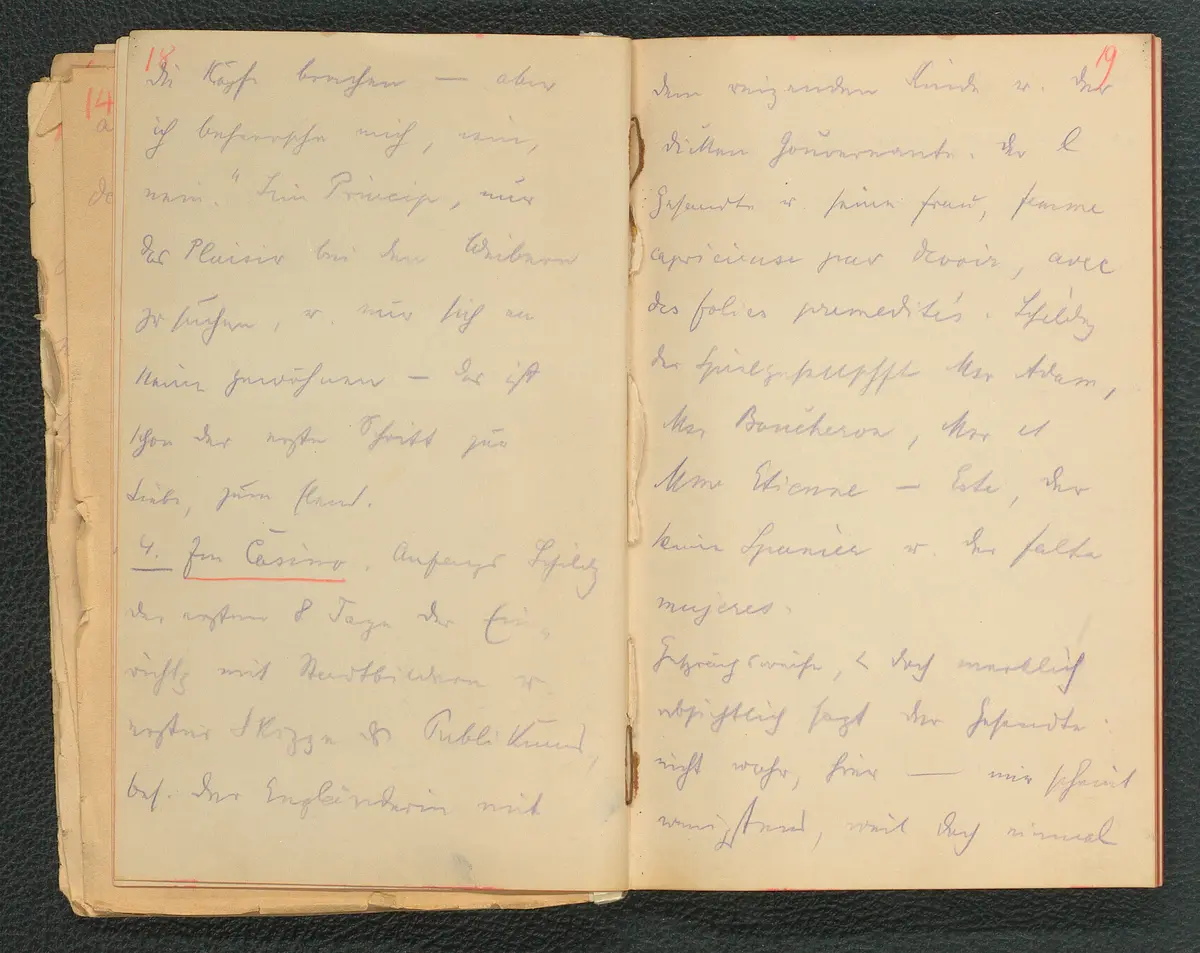 18
die Köpfe brechen — aber
ich beherrsche mich, nein,
nein." Sein Princip, nur
das Plaisir bei den Weibern
zu suchen, u. nur sich an
keine gewöhnen — das ist
schon der erste Schritt zur
Liebe, zum Elend.
4. Im Casino. Anfangs Schildg
der ersten 8 Tage der Ein-
richtg mit Stadtbildern u.
erster Skizze des Publikums,
bes. der Engländerin mit
19
dem reizenden Kinde u. der
dicken Gouvernante. Der
Gesandte u. seine Frau, femme
capricieuse par devoir, avec
des folies premedités. Schildg
der Spielgesellschft Msr Adam,
Msr Boucheron, Msr et
Mme Etienne — Este, der
kein Spanier u. der falta
mujeres.
Gesprächsweise, doch merklich
absichtlich sagt der Gesandte:
nicht wahr, hier — mir scheint
wenigstens, weil doch einmal
14